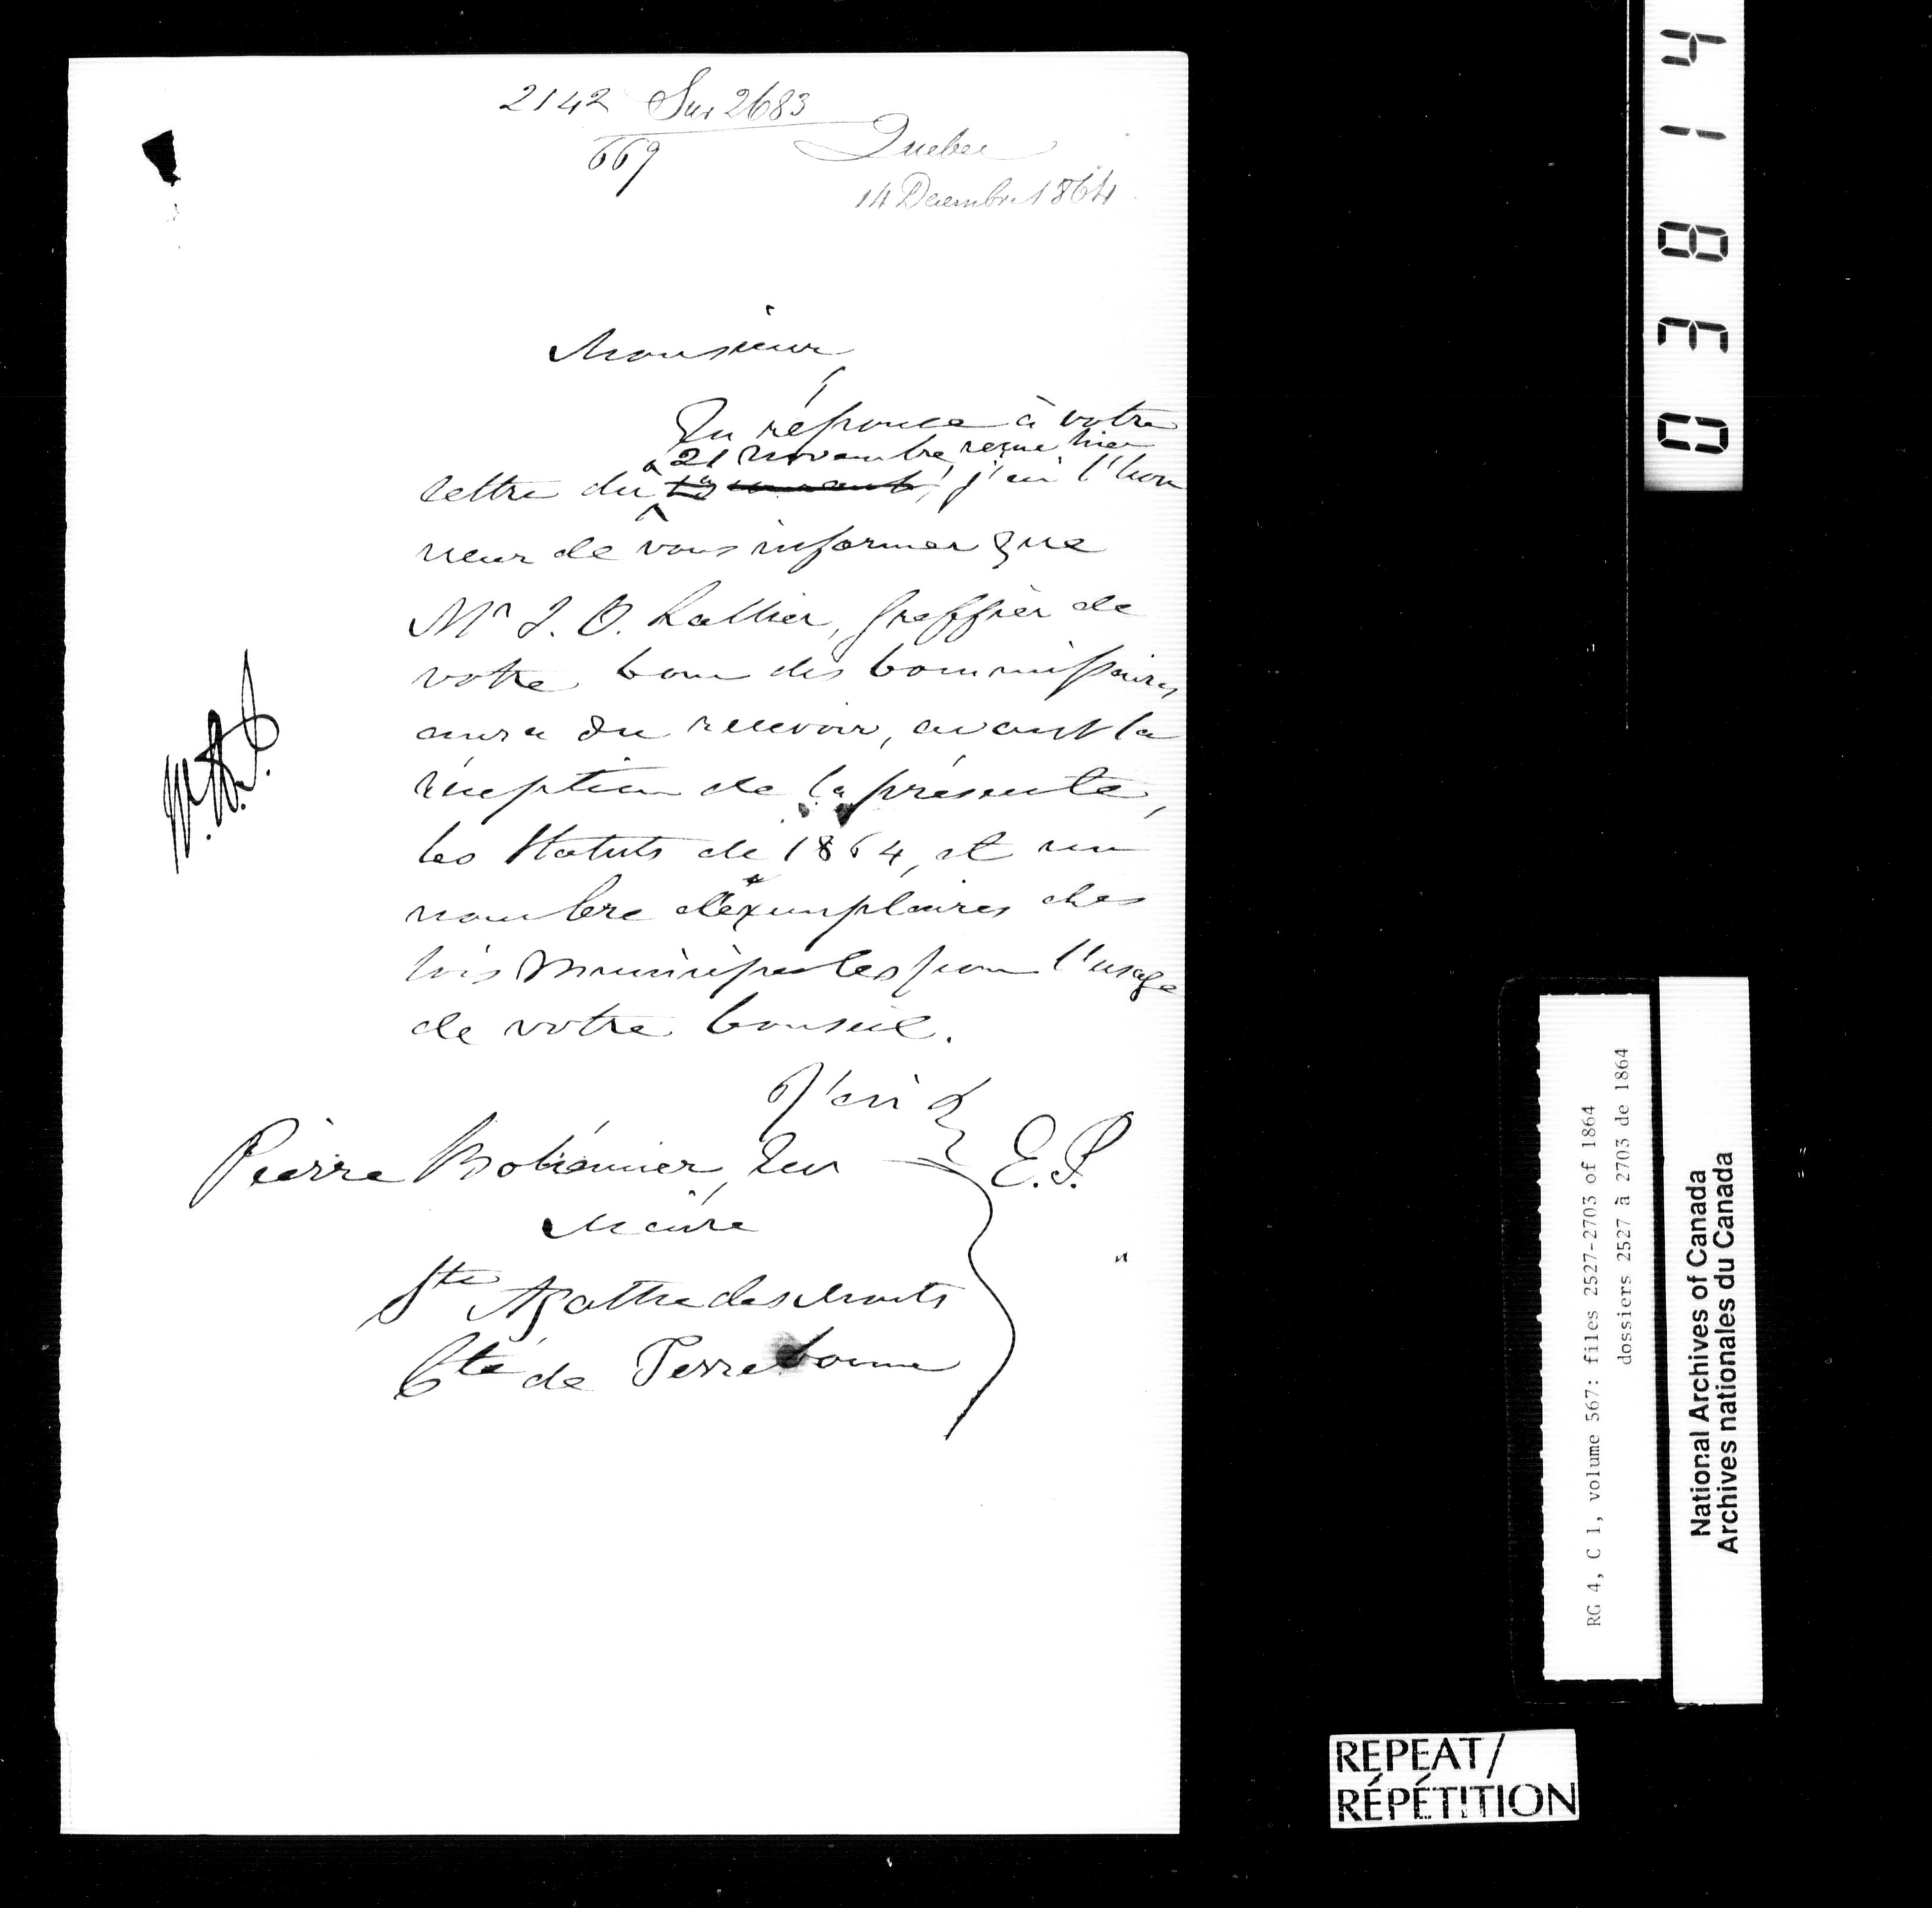 2142 Sur 2683
669
Quebec
14 Decembre 1864
Monsieur,
En réponse à votre
21 novembre, reçue hier
lettre du 13 courant, j'ai l'hon
neur de vous informer que
Mr J. B. Lallier, Greffier de
votre Cour des Commissaires
aura du recevoir, avant la
réception de la présente,
les Statuts de 1864, et un
nombre d'exemplaires des
lois Municipales pour l'usage
de votre Conseil.
J'ai &
E. P.
Pierre Bohémier, Eur
Maire
Ste Agathe des Monts
Cté de Terrebonne
03814
RG 4, C 1, volume 567: files 2527-2703 of 1864
dossiers 2527 à 2703 de 1864
National Archives of Canada
Archives nationales du Canada
REPEAT/
RÉPÉTITION